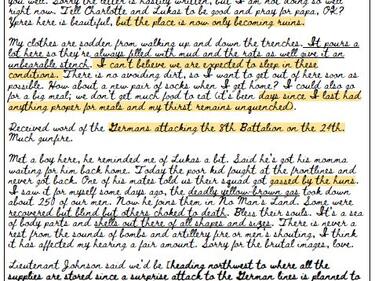 you well. Sorry the letter is hastily written, but I am not doing so well
right now. Tell Charlotte and Lukas to be good and pray for papa, OK?
Ypres here is beautiful, but the place is now only becoming ruins.
My clothes are sodden from walking up and down the trenches. It pours a
lot here so they're always filled with mud and the rats as well give it an
unbearable stench. I can't believe we are expected to sleep in these
conditions. There is no avoiding dirt, so I want to get out of here soon as
possible. How about a new pair of socks when I get home? I could also go
for a big meal; we don't get much food to eat (it's been days since I last had
anything proper for meals and my thirst remains unquenched).
Received word of the Germans attacking the 8th Battalion on the 24th.
Much gunfire.
Met a boy here, he reminded me of Lukas a bit. Said he's got his momma
waiting for him back home. Today the poor kid fought at the frontlines and
never got back. One of his mates told us their squad got gassed by the huns.
I saw it for myself some days ago, the deadly yellow-brown gas took down
about 250 of our men. Now he joins them in No Man's Land. Some were
recovered but blind but others choked to death. Bless their souls. It's a sea
of body parts and shells out there of all shapes and sizes. There is never a
rest from the sounds of bombs and artillery fire or men a shouting. I think
it has affected my hearing a fair amount. Sorry for the brutal images, love.
Lieutenant Johnson said we'd be (heading northwest to where all the
supplies are stored since a surprise attack to the German lines is planned to